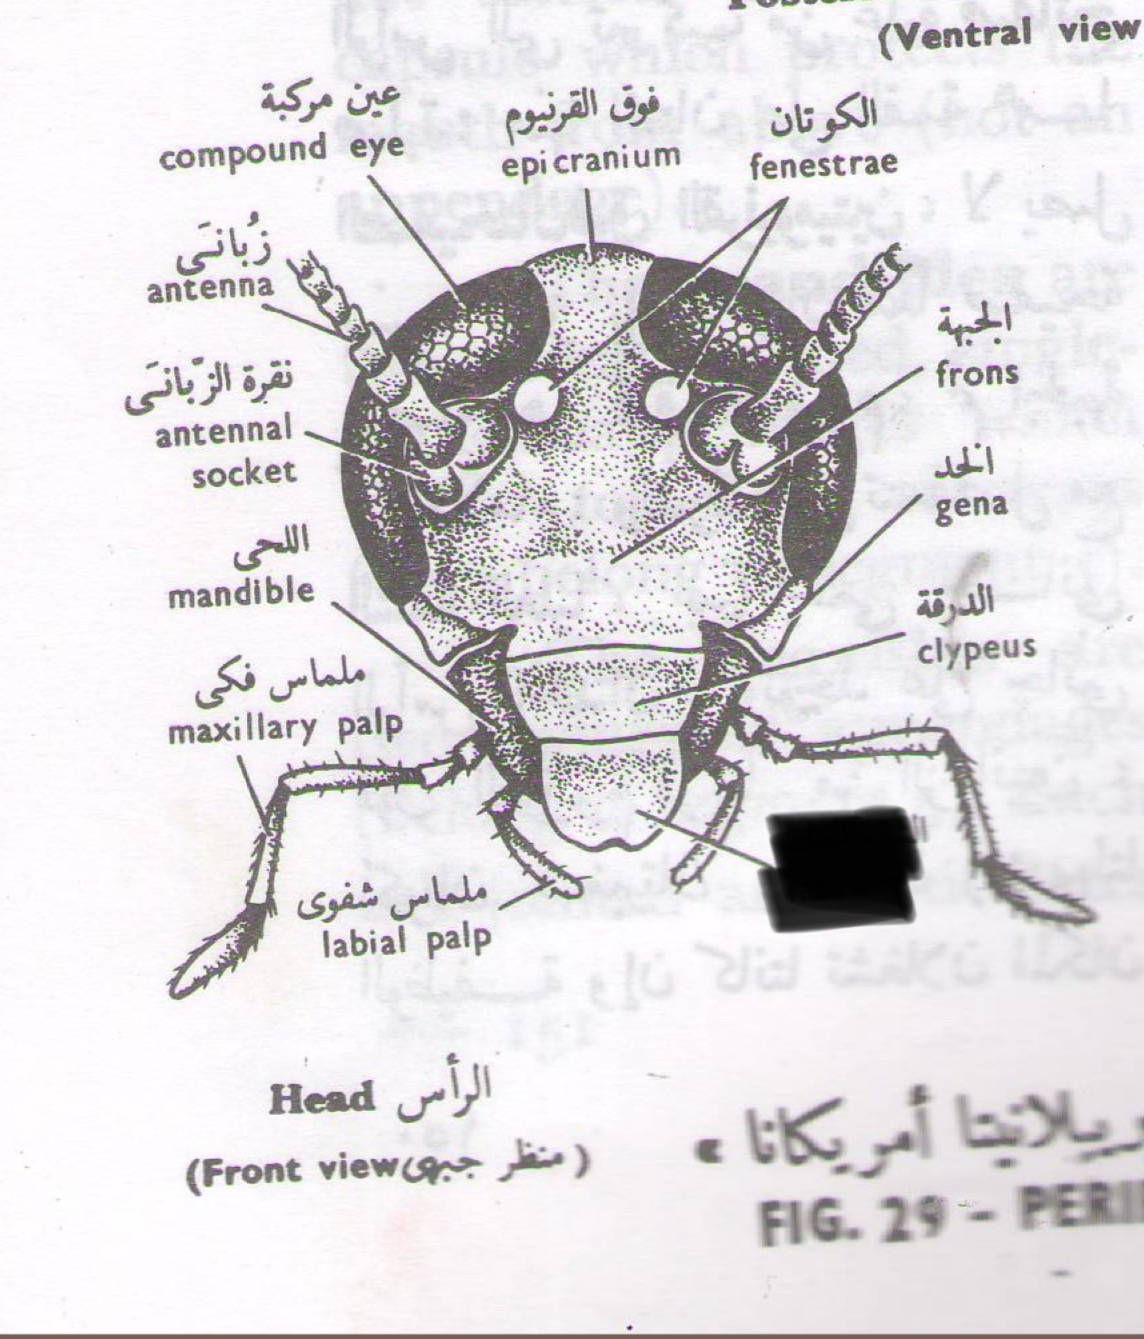 (Ventral view
عين مركبة
compound eye
فوق القرنيوم
epicranium
الكوتان
fenestrae
زُبانَى
antenna
الجبهة
frons
نقرة الزّبانَى
antennal
socket
الخد
gena
اللحى
mandible
الدرقة
clypeus
ملماس فكى
maxillary palp
ملماس شفوى
labial palp
Head الرأس
(Front view منظر جبهى)
أمريكانا »
FIG. 29 –